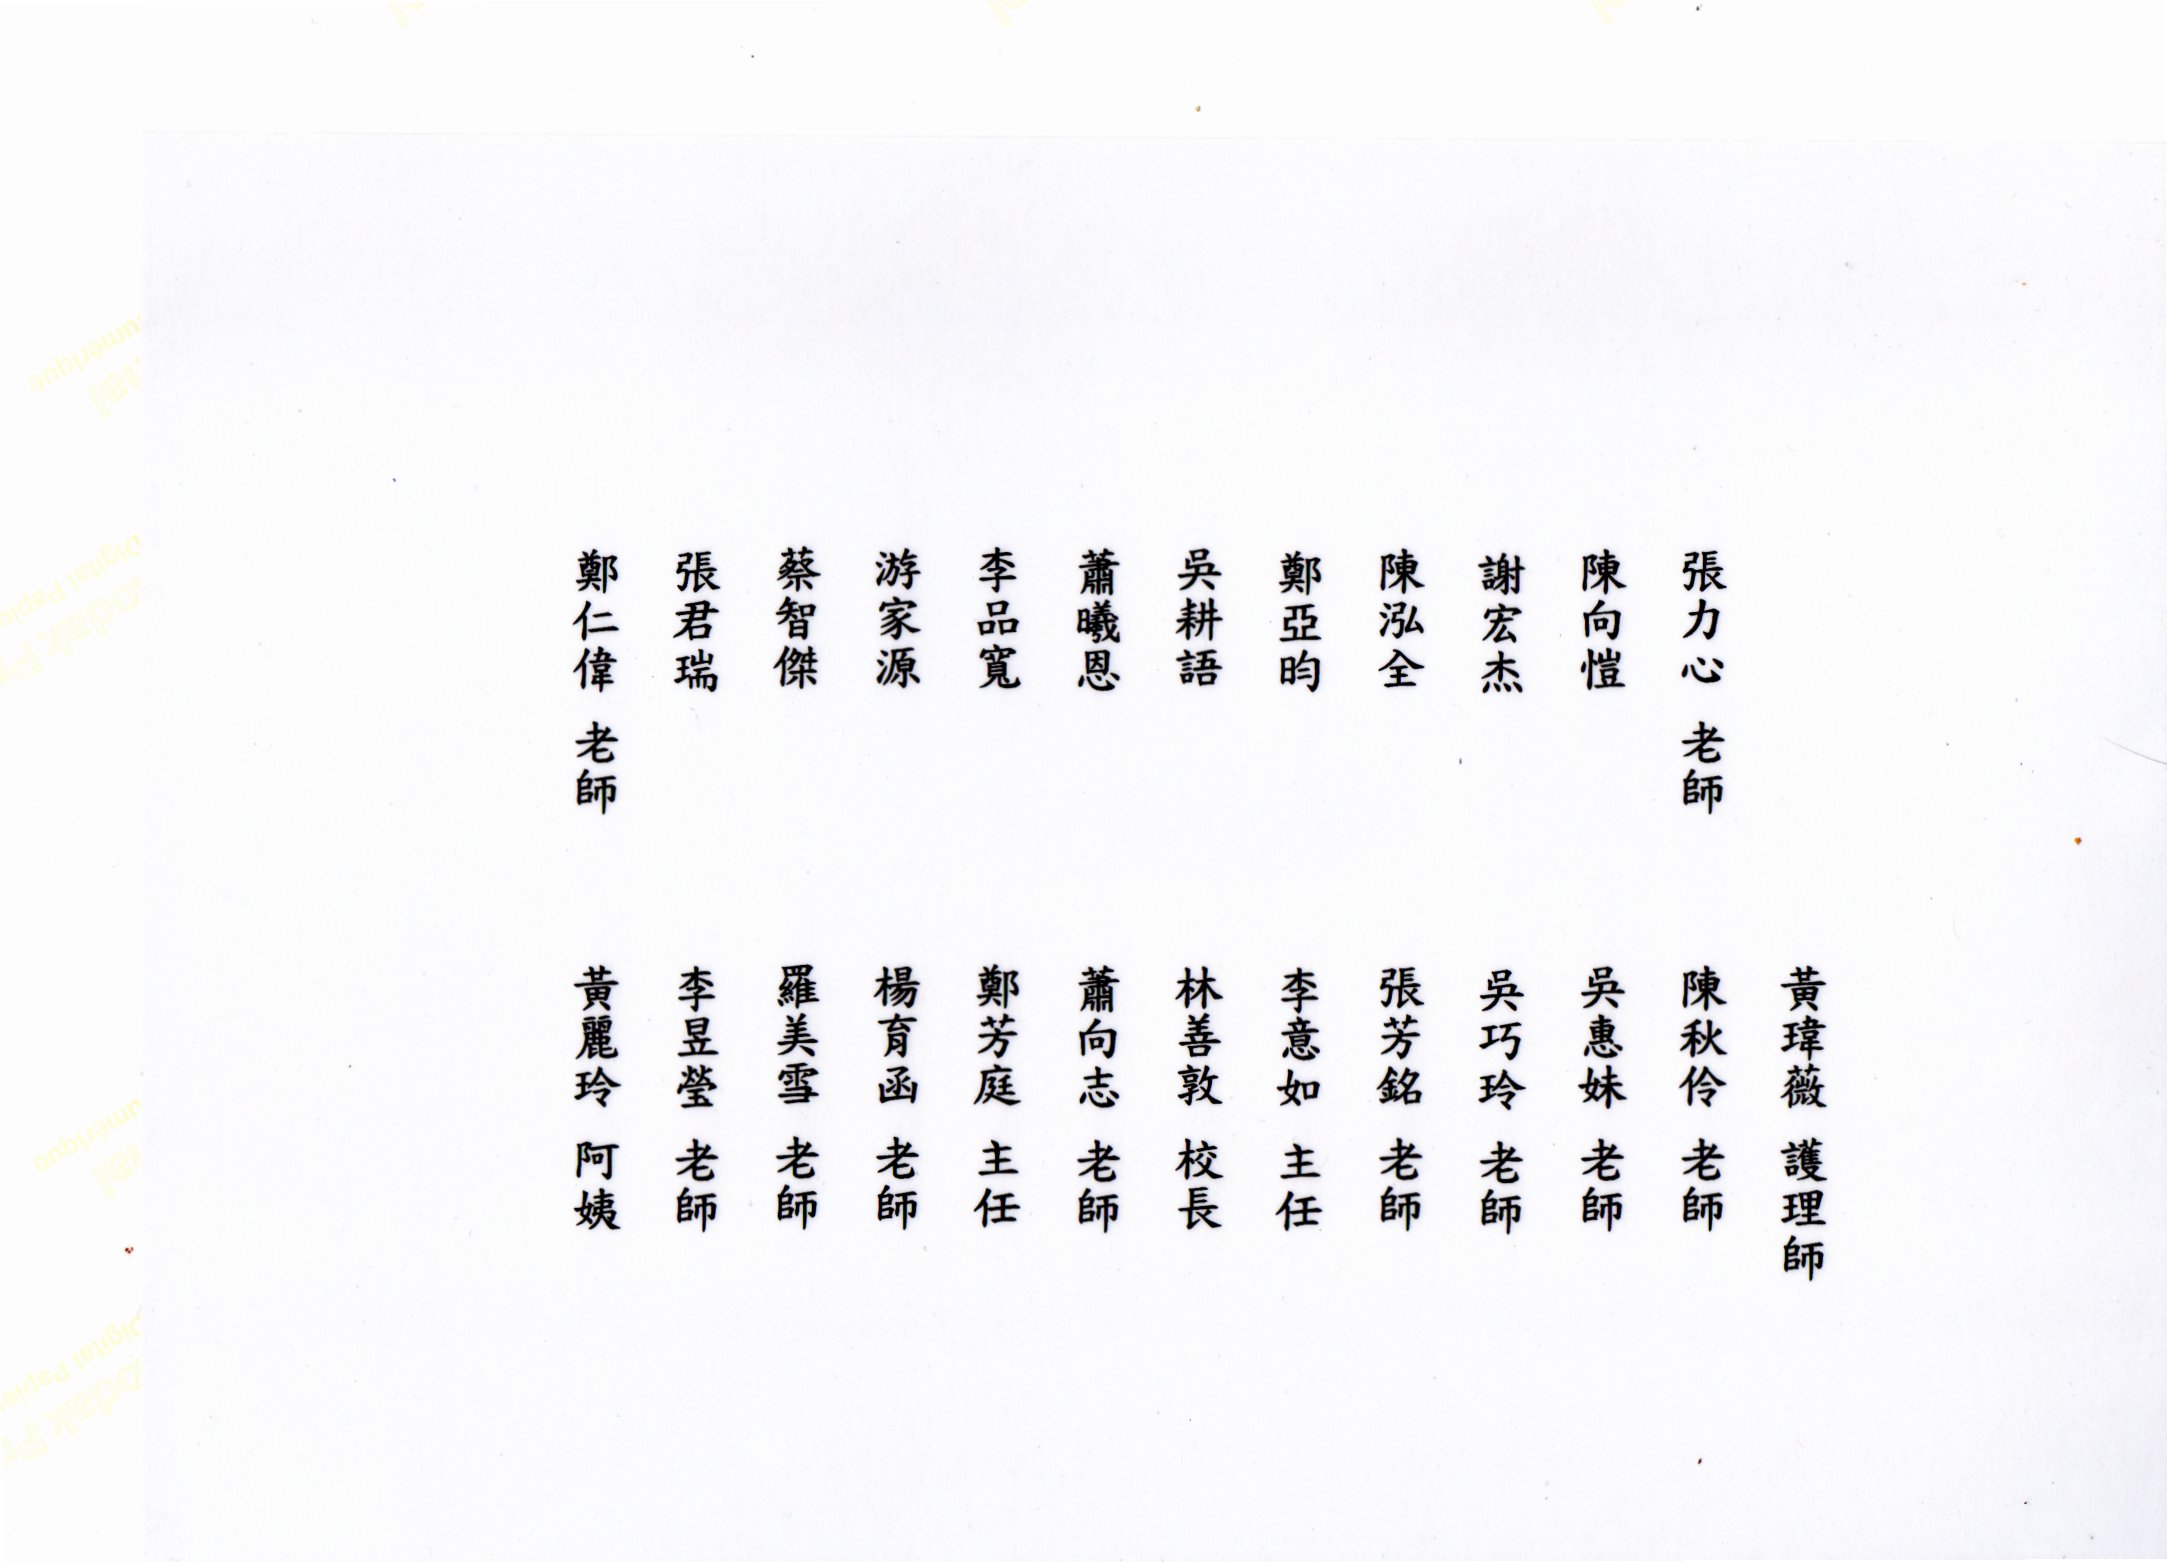 張力心 老師
陳向愷
謝宏杰
陳泓全
鄭亞昀
吳耕語
蕭曦恩
李品寬
游家源
蔡智傑
張君瑞
鄭仁偉 老師
黃瑋薇 護理師
陳秋伶 老師
吳惠妹 老師
吳巧玲 老師
張芳銘 老師
李意如 主任
林善敦 校長
蕭向志 老師
鄭芳庭 主任
楊育函 老師
羅美雪 老師
李昱瑩 老師
黃麗玲 阿姨